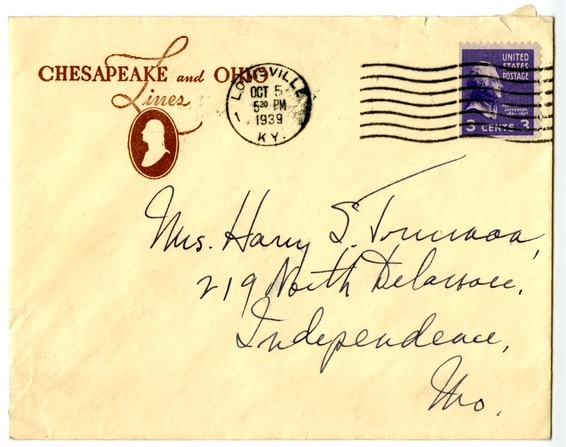 CHESAPEAKE and OHIO
Lines
LOUISVILLE
OCT 5
5 30 PM
1939
KY.
UNITED
STATES
POSTAGE
3 CENTS 3
Mrs. Harry S. Truman,
219 North Delaware,
Independence,
Mo.